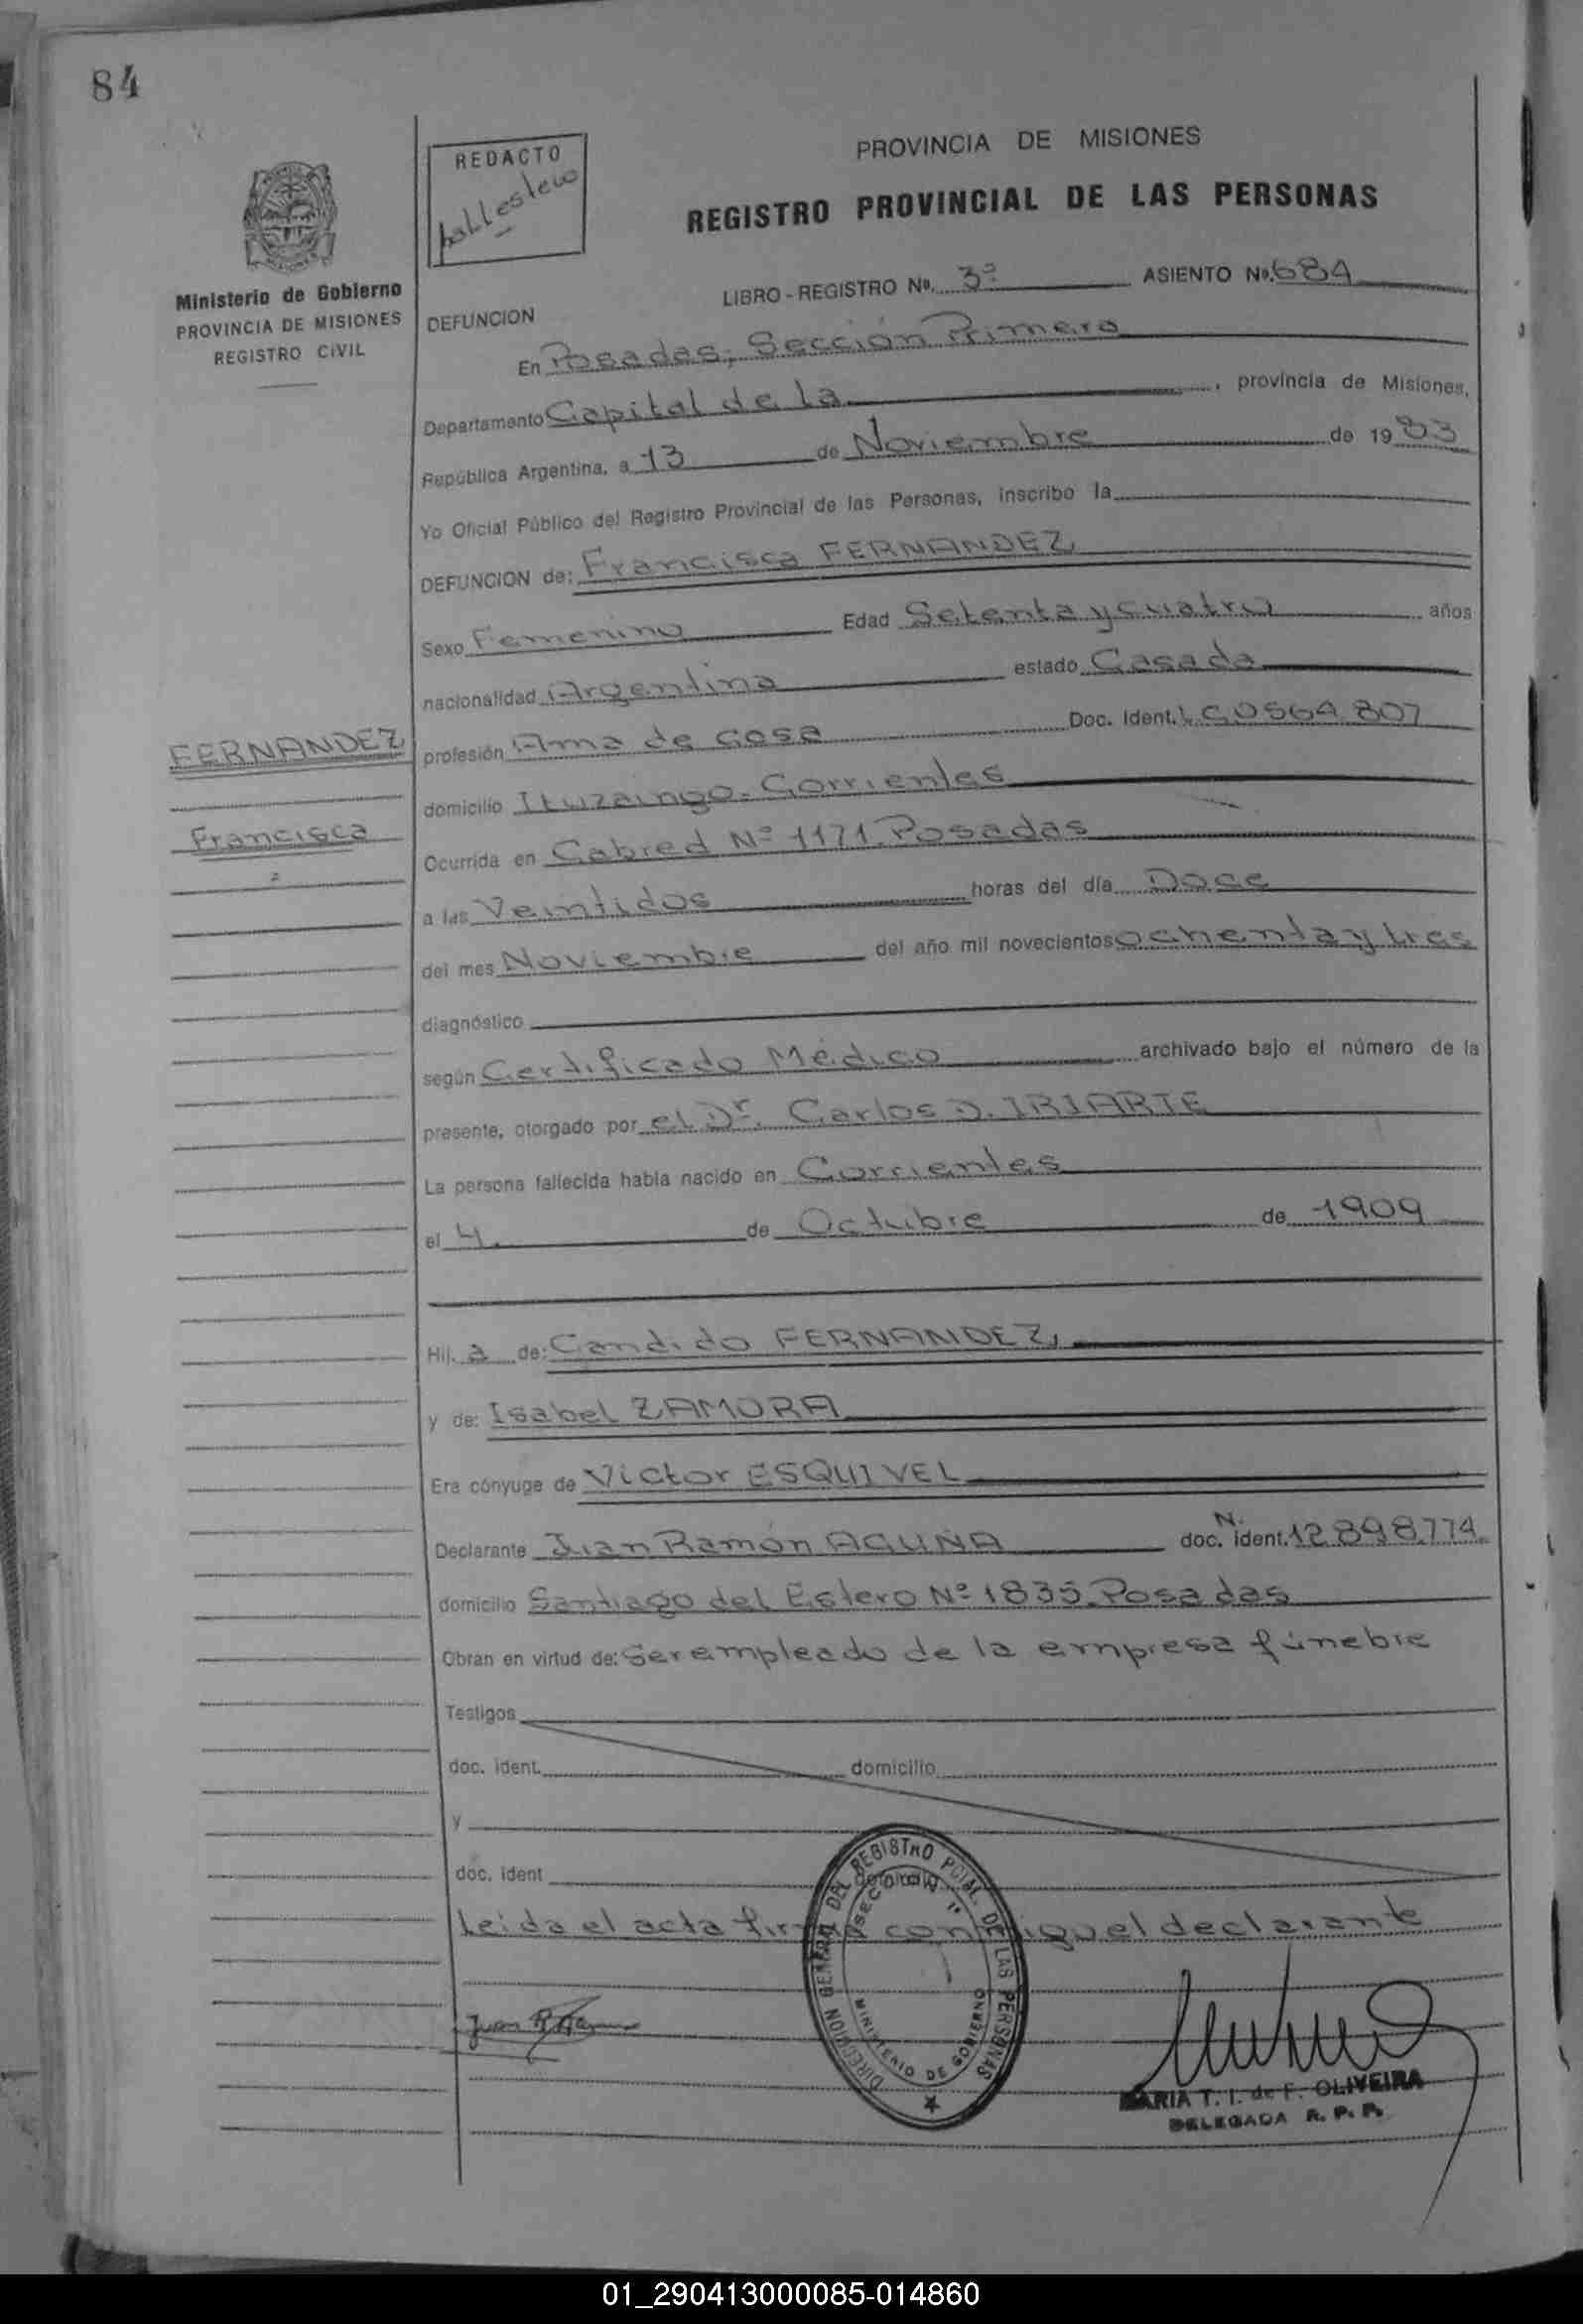 84
PROVINCIA DE MISIONES
REGISTRO PROVINCIAL DE LAS PERSONAS
REDACTO
Ministerio de Gobierno
PROVINCIA DE MISIONES
REGISTRO CIVIL
LIBRO - REGISTRO Nº. 3º ASIENTO Nº. 684
DEFUNCION
En Posadas, Sección Primera
Departamento Capital de la, provincia de Misiones,
República Argentina, a 13 de Noviembre de 1983
Yo Oficial Público del Registro Provincial de las Personas, inscribo la
DEFUNCION de: Francisca FERNANDEZ
Sexo Femenino Edad Setenta y cuatro años
nacionalidad Argentina estado Casada
FERNANDEZ
profesión Ama de casa Doc. Ident. LC 0564 807
domicilio Ituzaingo - Corrientes
Francisca
Ocurrida en Cabred Nº 1171. Posadas
a las Veintidos horas del día Doce
del mes Noviembre del año mil novecientos ochenta y tres
diagnóstico
según Certificado Médico archivado bajo el número de la
presente, otorgado por el Dr. Carlos D. IRIARTE
La persona fallecida había nacido en Corrientes
el 4. de Octubre de 1909
Hij. a de: Candido FERNANDEZ,
y de: Isabel ZAMORA
Era cónyuge de Victor ESQUIVEL
Declarante Juan Ramón ACUÑA doc. N. ident. 12.898.774.
domicilio Santiago del Estero Nº 1835. Posadas
Obran en virtud de: Ser empleado de la empresa fúnebre
Testigos
doc. ident. domicilio
y
doc. ident domicilio
Leida el acta firma conmigo el declarante
DIRECCION GENERAL DEL REGISTRO PCIAL. DE LAS PERSONAS
SECCION 1ª
MINISTERIO DE GOBIERNO
MARIA T. I. de F. OLIVEIRA
DELEGADA R. P. P.
01_290413000085-014860